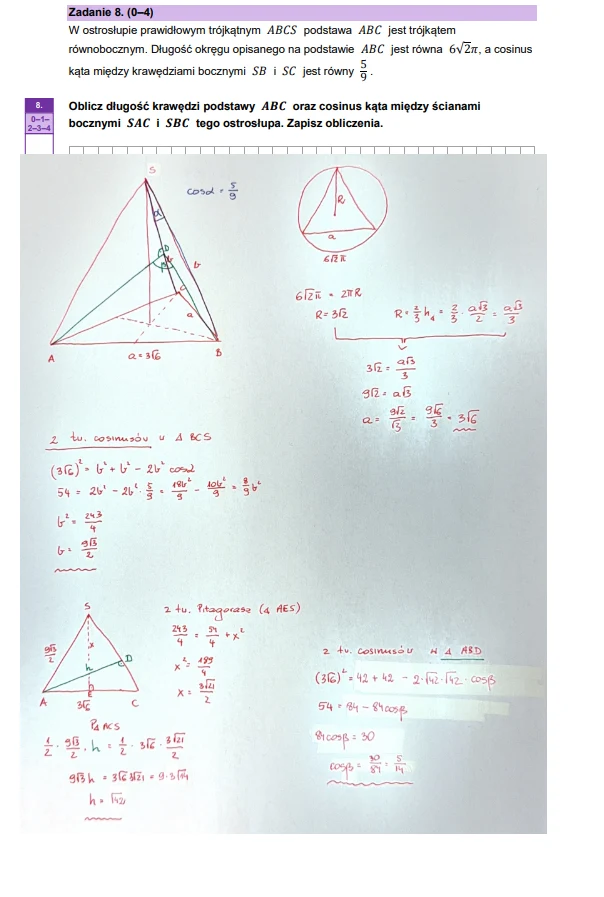 Zadanie 8. (0–4)
W ostrosłupie prawidłowym trójkątnym ABCS podstawa ABC jest trójkątem
równobocznym. Długość okręgu opisanego na podstawie ABC jest równa 6√2π, a cosinus
kąta między krawędziami bocznymi SB i SC jest równy 5/9.
8.
0–1–
2–3–4
Oblicz długość krawędzi podstawy ABC oraz cosinus kąta między ścianami
bocznymi SAC i SBC tego ostrosłupa. Zapisz obliczenia.
S
cosα = 5/9
α
D
b
b
β
C
a
A
a = 3√6
B
R
a
6√2π
6√2π = 2πR
R = 3√2
R = 2/3 h₄ = 2/3 · a√3/2 = a√3/3
3√2 = a√3/3
9√2 = a√3
a = 9√2/√3 = 9√6/3 = 3√6
z tw. cosinusów w Δ BCS
(3√6)² = b² + b² − 2b² cosα
54 = 2b² − 2b² · 5/9 = 18b²/9 − 10b²/9 = 8/9 b²
b² = 243/4
b = 9√3/2
S
9√3/2
x
D
h
A
E
C
3√6
z tw. Pitagorasa (Δ AES)
243/4 = 54/4 + x²
x² = 189/4
x = 3√21/2
PΔACS
1/2 · 9√3/2 · h = 1/2 · 3√6 · 3√21/2
9√3 h = 3√6 3√21 = 9·3√14
h = √42
z tw. cosinusów w Δ ABD
(3√6)² = 42 + 42 − 2·√42·√42 · cosβ
54 = 84 − 84cosβ
84cosβ = 30
cosβ = 30/84 = 5/14